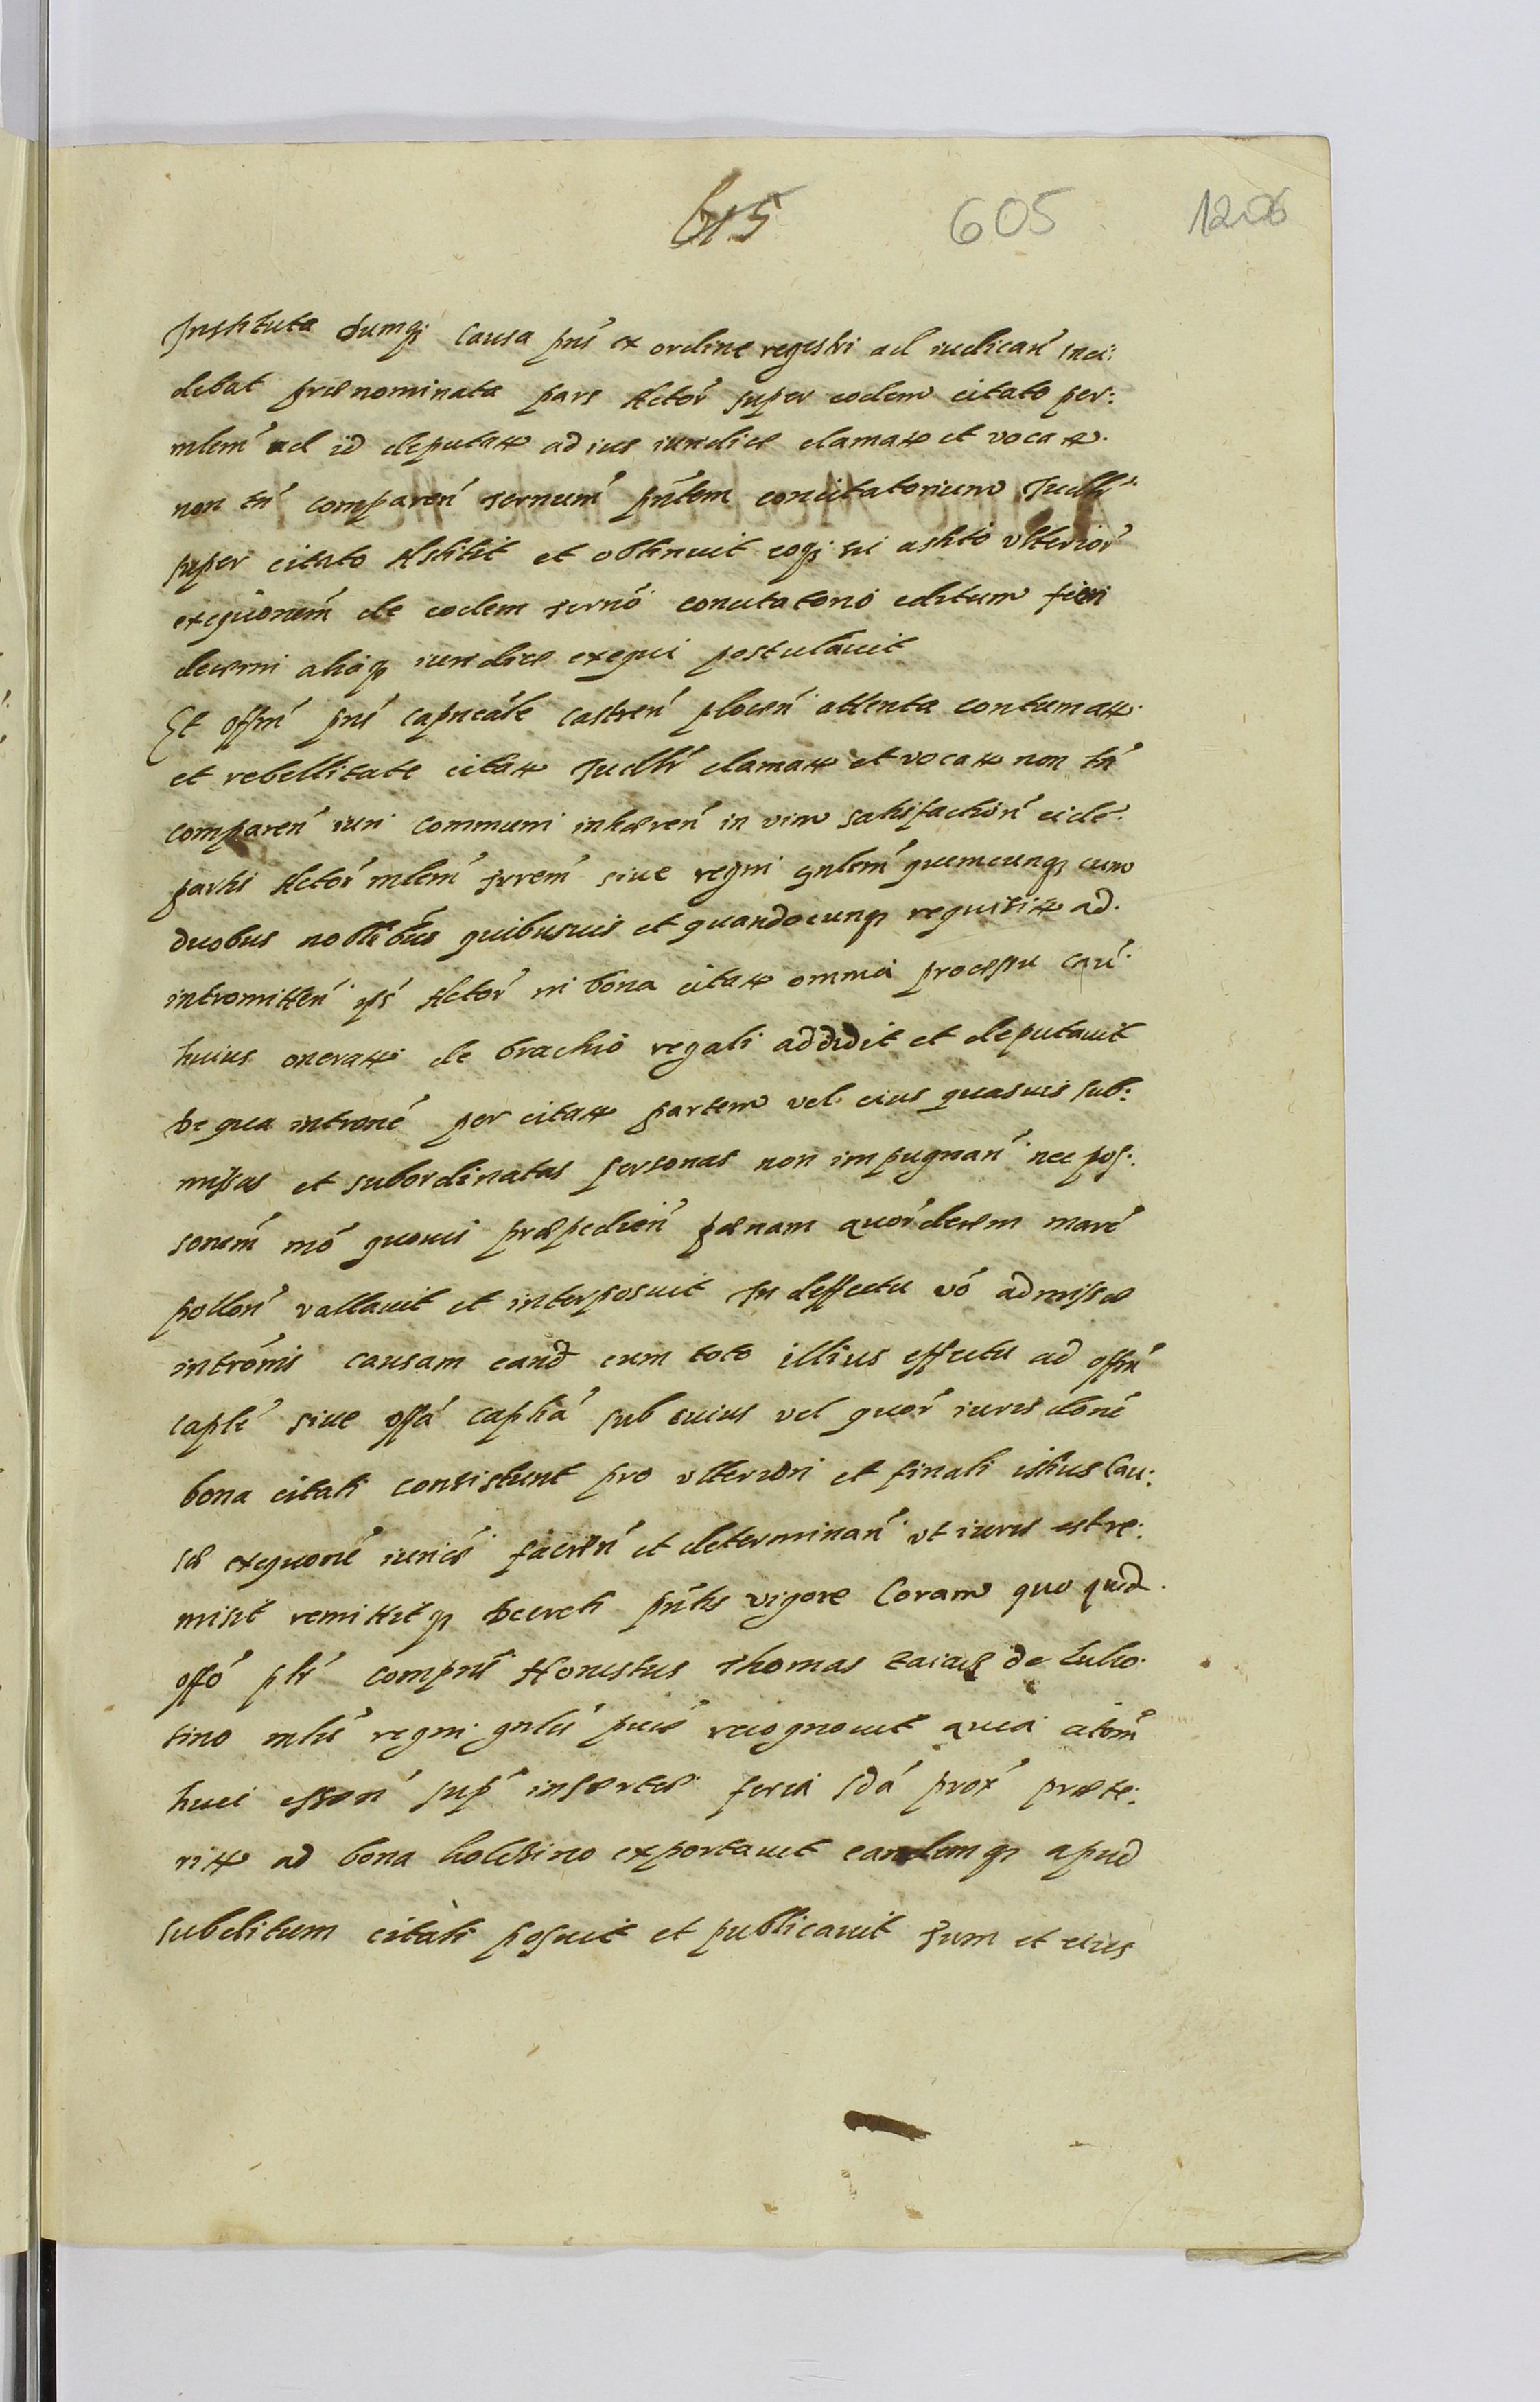 615 605 1206
Instituta Dumq; causa pns̃ ex ordine regestri ad iudicań inci:
debat prænominata pars Actoŕ super eodem citato per:
mlem̃ ad id deputat. ad ius iuridice clamat. et vocat.
non tń compareń ternum̃ pńtem concitatorium Iudlr̃
super citato Astitit et obtinuit eoq; sic astito vlterioŕ
exequonem̃ de eodem ternõ concitatorio editum fieri
decerni aliaq; iuridice exequi postulauit
Et offm̃ pns̃ capneále castreń ploceń attenta contumat.
et rebellitate citat. Iudlr̃ clamat. et vocat. non tń
compareń iuri communi inhæreń in vim satisfactioń eidẽ
parti Actoŕ mlem̃ trrem̃ siue regni gnlem̃ quemcunq; cum
duobus noblibus quibusuis et quandocunq; requisit. ad
intromitteń ips̃ Actoŕ in bona citat. omnia processu cau.
huius onerat. de brachio regali addidit et deputauit
De qua intronẽ per citat. partem vel eius quasuis sub:
missas et subordinatas personas non impugnań nec pos:
sonem̃ mõ quouis præpedień pœnam quoŕ decem maré
polloń vallauit et interposuit In deffectu võ admissæ
intromis̃ causam eand̃ cum toto illius effectu ad offm̃
caplé siue offá caplia sub cuius vel quoŕ iuris donẽ
bona citati consistunt pro vlteriori et finali istius cau:
sæ exequonẽ iurice facień et determinań vt iuris est re:
misit remittitq; Decreti pńtis vigore Coram quo quid̃
offõ plr̃ compns̃ Honestus Thomas Zaiac de Lulko
sino mlis̃ regni gnlis̃ pucẽ recognouit quia citom̃
huci essen̄ sup̃ insertæ feria sdá prox̃ præte:
rit. ad bona holesino exportauit eandemq; apud
subditum citati posuit et publicauit Tum et eius